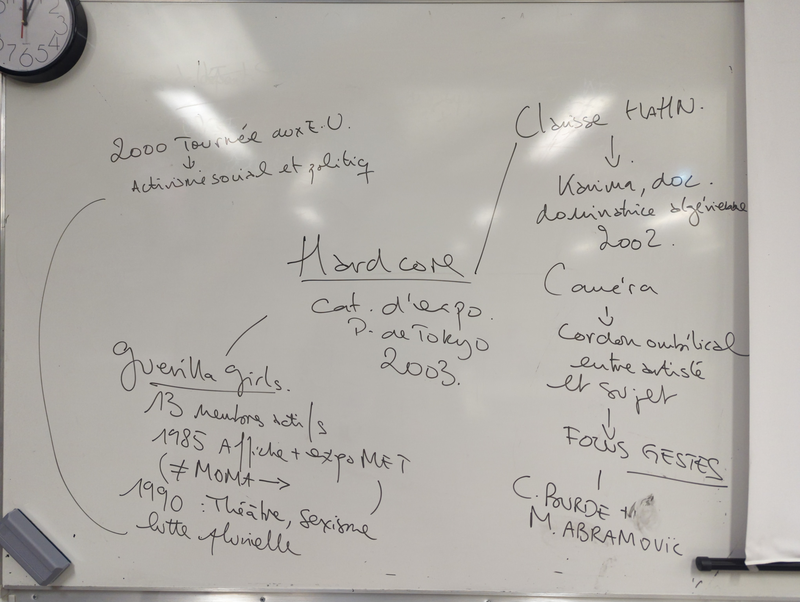 2000 Tournée aux E.U.
↓
Activisme social et politiq
Hardcore
Cat. d'expo.
P. de Tokyo
2003.
guerilla girls.
13 membres actifs
1985 Affiche + expo MET
(≠ MOMA →
)
1990 : Théâtre, sexisme
lutte plurielle
Clarisse HAHN.
↓
Karima, doc.
dominatrice algérienne
2002.
Caméra
↓
Cordon ombilical
entre artiste
et sujet
↓
FOCUS GESTES
C. BOURDE +
M. ABRAMOVIC
2 3 4 5 6 7